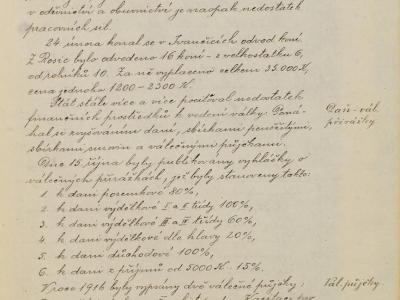 v oděvnictví a obuvnictví je naopak nedostatek
pracovních sil.
24. února konal se v Ivančicích odvod koní.
Z Rosic bylo odvedeno 16 koní - z velkostatku 6,
od rolníků 10. Za ně vyplaceno celkem 35.000 K,
cena jednoho 1200 - 2500 K.
Stát stále více a více pociťoval nedostatek
finančních prostředků k vedení války. Pomá-
hal si zvyšováním daní, sbírkami peněžitými,
sbírkami surovin a válečnými půjčkami.
Daň. vál.
přirážky.
Dne 15. října byly publikovány vyhlášky o
válečných přirážkách, jež byly stanoveny takto:
1. k dani pozemkové 80%,
2. k dani výdělkové I a II třídy 100%,
3. k dani výdělkové III a IV třídy 60%,
4. k dani výdělkové dle hlavy 20%,
5. k dani důchodové 100%,
6. k dani z příjmů od 5000 K 15%.
V roce 1916 byly vypsány dvě válečné půjčky:
Vál. půjčky.